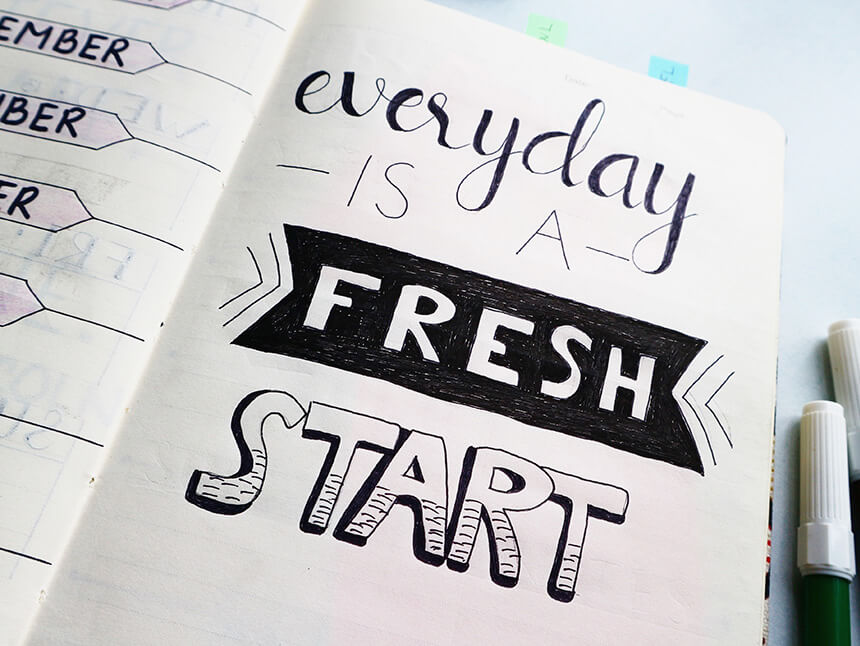 EMBER
BER
ER
everyday
- IS
A -
FRESH
START